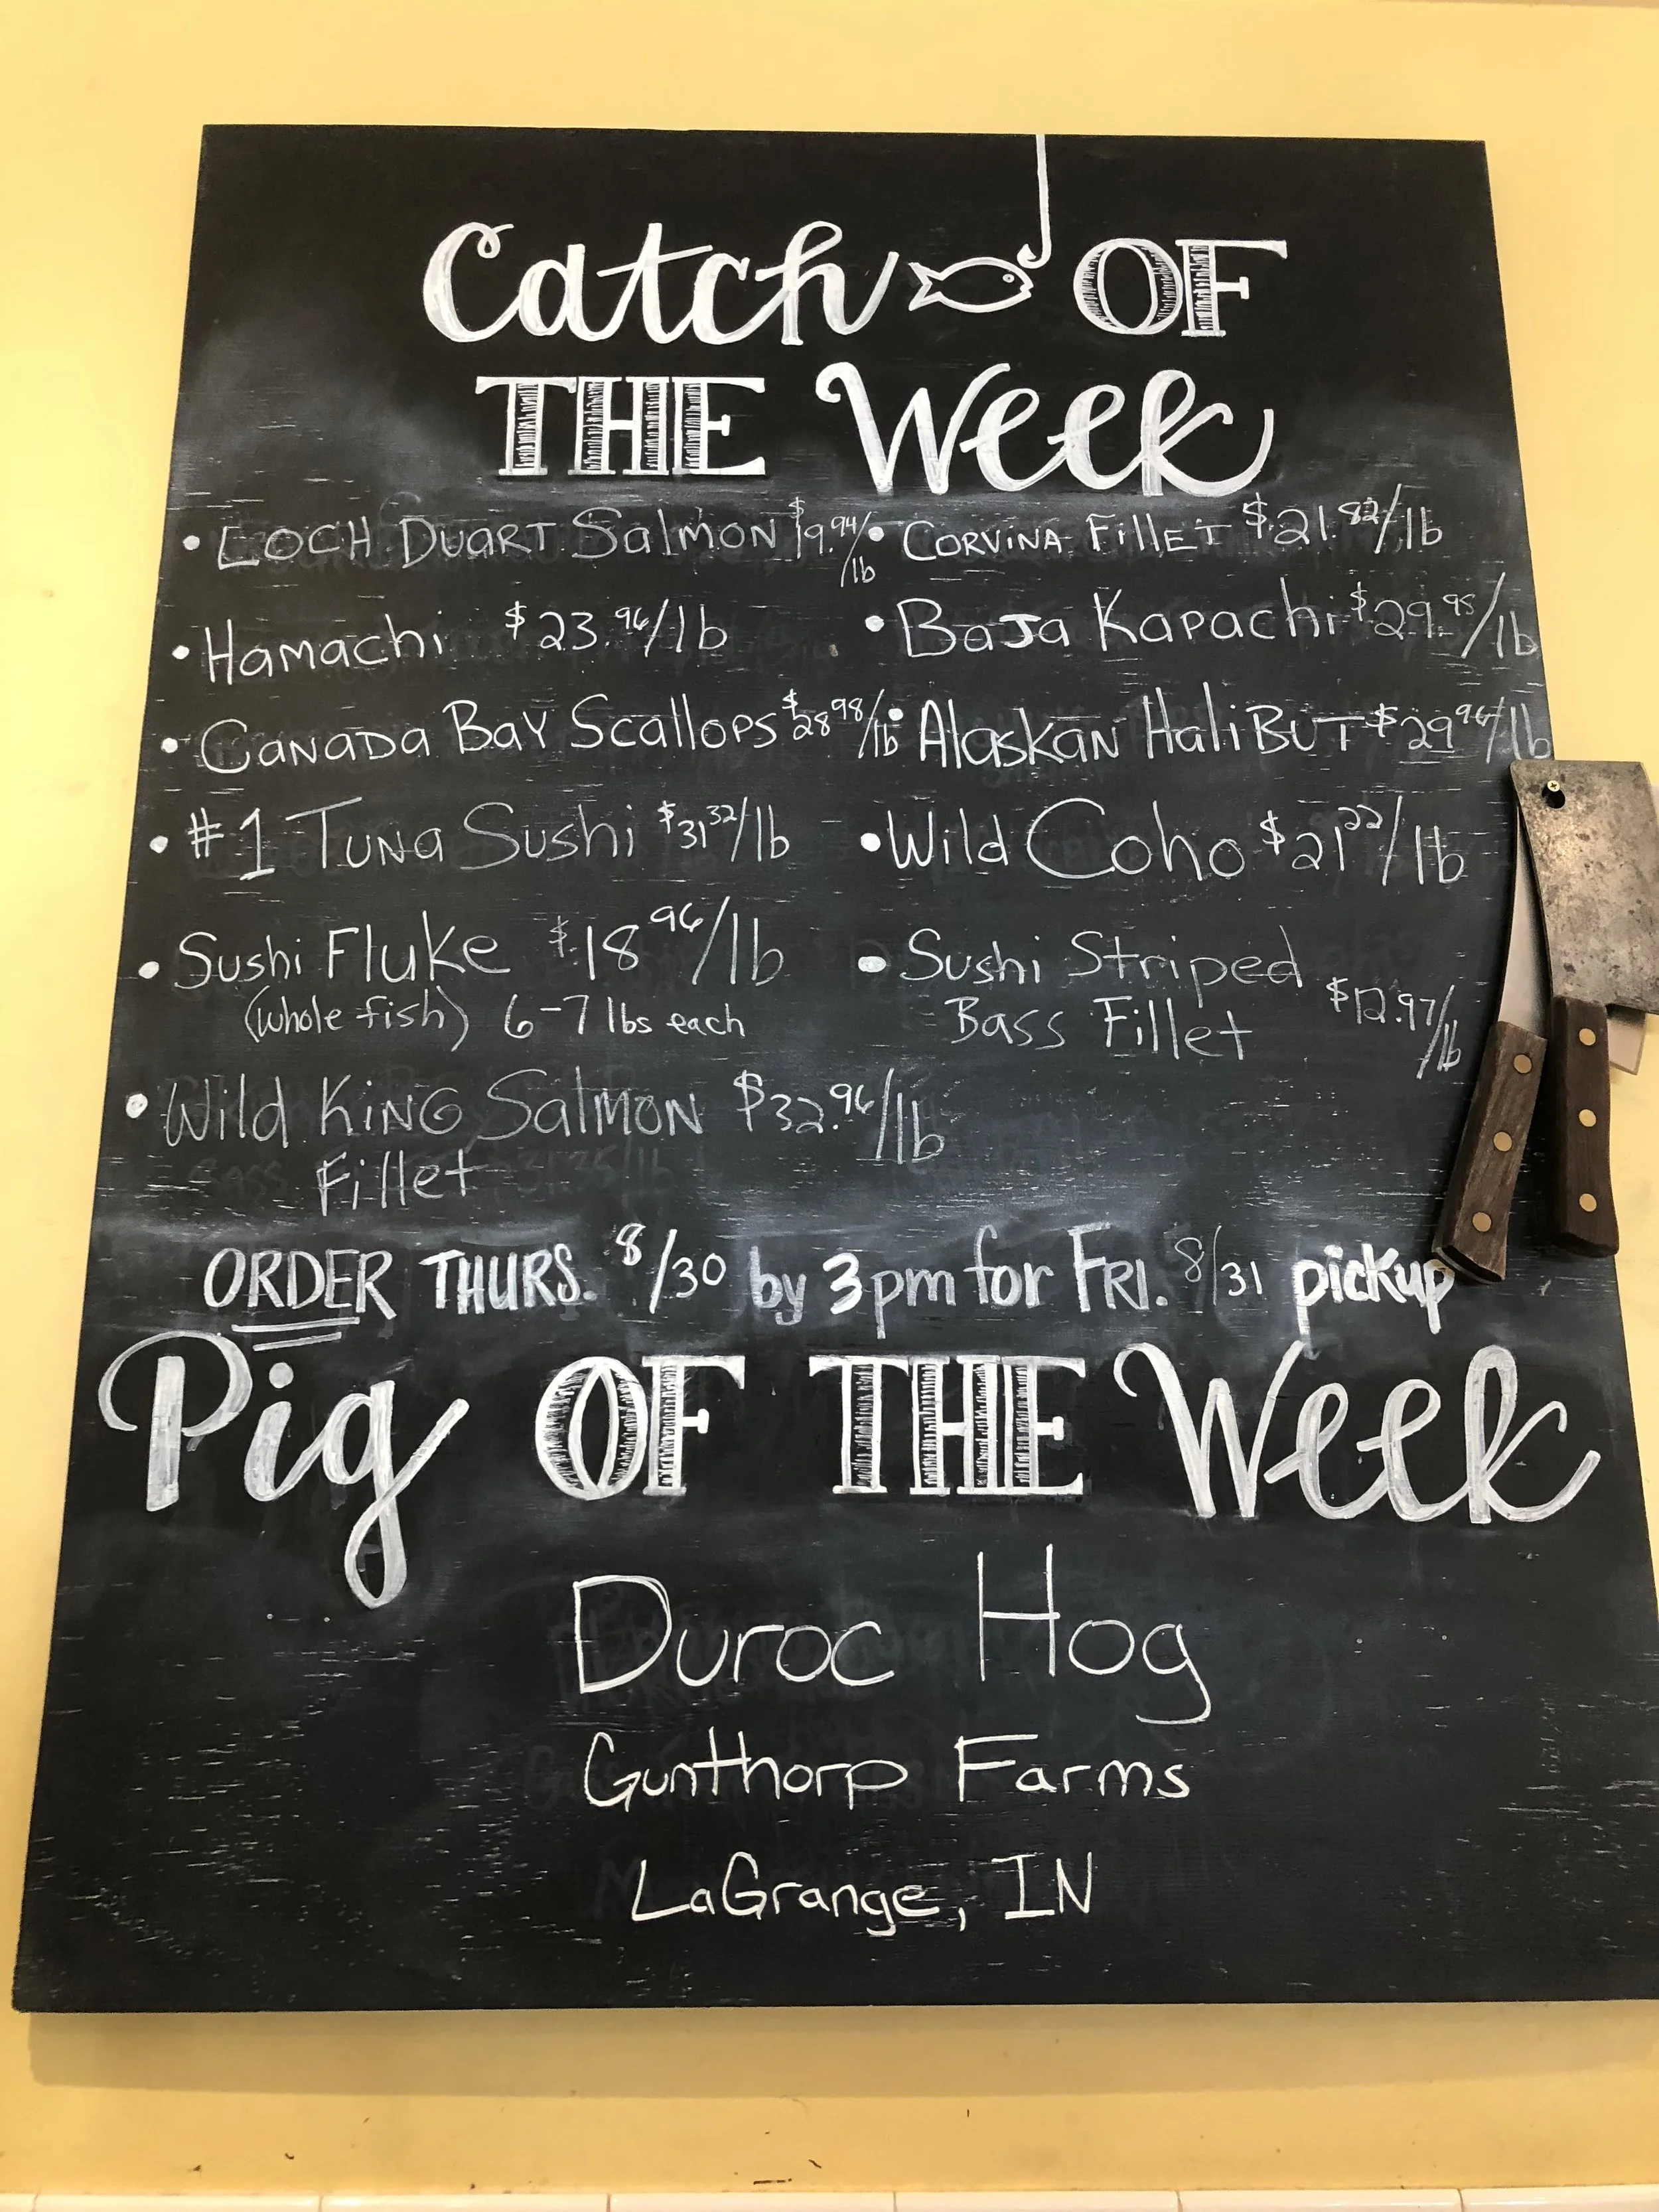 Catch OF
THE Week
• LOCH DUART Salmon $19.94/lb
• CORVINA FilleT $21.82/lb
• Hamachi $23.96/lb
• BaJa Kapachi $29.95/lb
• CANADA BAY Scallops $28.98/lb
• AlaskaN HaliBUT $29.96/lb
• #1 TUNa Sushi $31.32/lb
• Wild Coho $21.22/lb
• Sushi Fluke $18.96/lb
(whole fish) 6-7 lbs each
• Sushi Striped
Bass Fillet $12.97/lb
• Wild KiNG SalmoN $32.96/lb
Fillet
ORDER THURS. 8/30 by 3pm for FRI. 8/31 pickup
Pig OF THE Week
Duroc Hog
Gunthorp Farms
LaGrange, IN